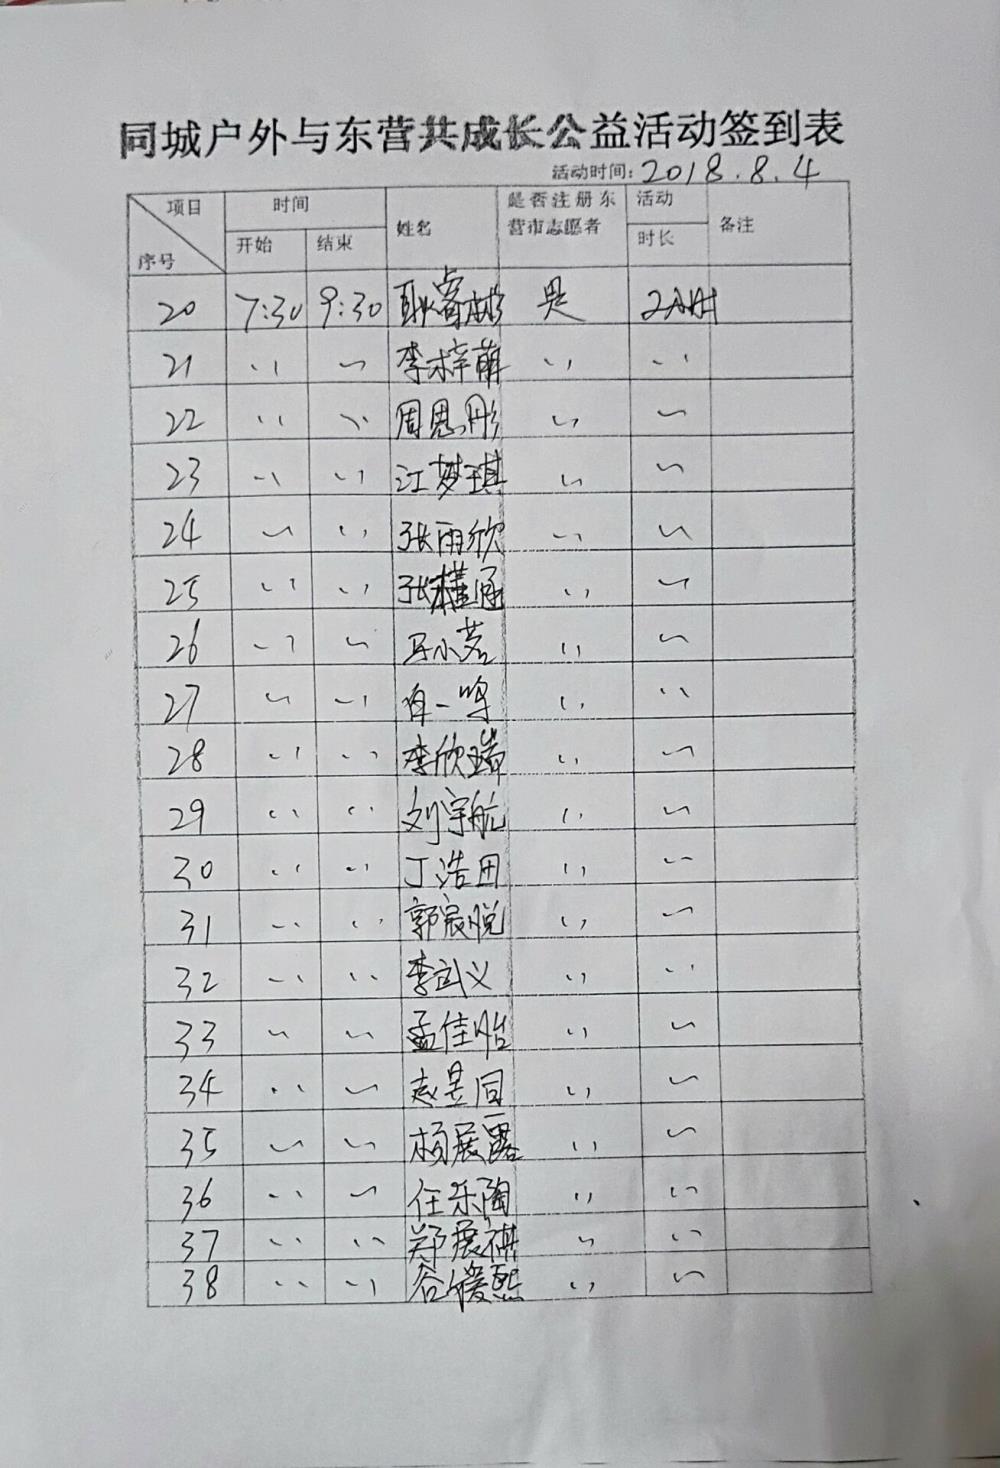 同城户外与东营共成长公益活动签到表
活动时间: 2018.8.4
项目 时间 姓名 是否注册东营市志愿者 活动时长 备注
序号 开始 结束
20 7:30 9:30 是
21 〃 〃 李梓萌 〃 〃
22 〃 〃 周恩彤 〃 〃
23 〃 〃 江梦琪 〃 〃
24 〃 〃 张雨欣 〃 〃
25 〃 〃 张槿涵 〃 〃
26 〃 〃 马小茗 〃 〃
27 〃 〃 一鸣 〃 〃
28 〃 〃 李欣瑞 〃 〃
29 〃 〃 刘宇航 〃 〃
30 〃 〃 丁浩田 〃 〃
31 〃 〃 郭宸悦 〃 〃
32 〃 〃 李武义 〃 〃
33 〃 〃 孟佳怡 〃 〃
34 〃 〃 昱同 〃 〃
35 〃 〃 杨展露 〃 〃
36 〃 〃 任乐陶 〃 〃
37 〃 〃 郑展祺 〃 〃
38 〃 〃 谷媛熙 〃 〃